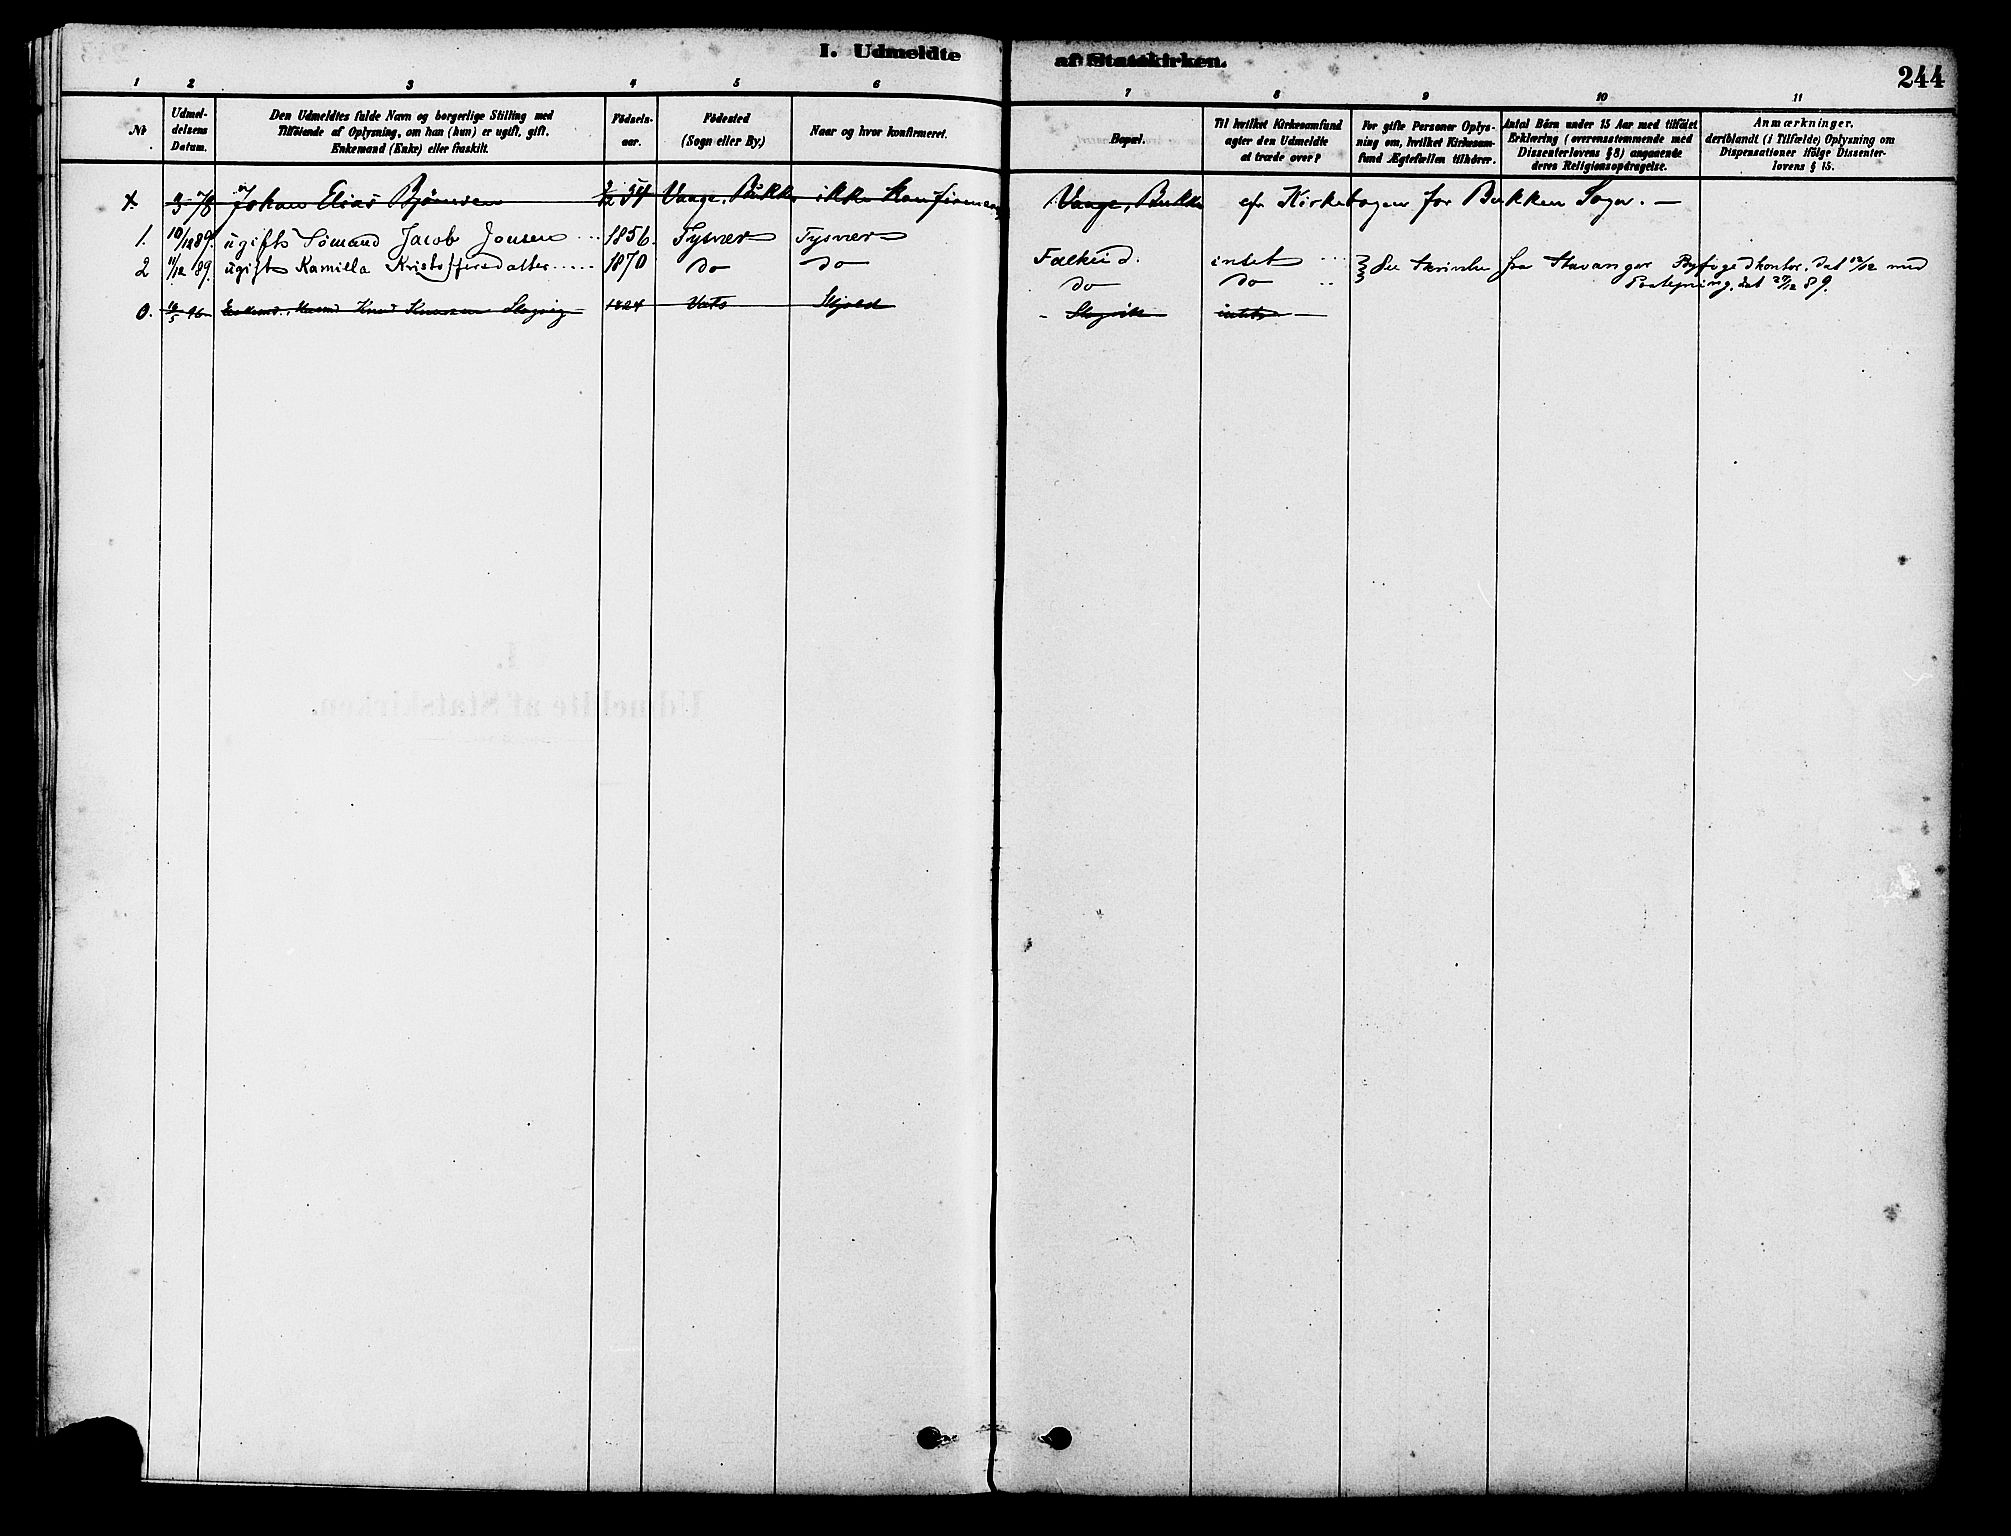 I. Udmeldte af Statskirken.
244
1 2 3 4 5 6 7 8 9 10 11
No
Udmeldelsens Datum.
Den Udmeldtes fulde Navn og borgerlige Stilling med
Tilföiende af Oplysning, om han (hun) er ugift, gift.
Enkemand (Enke) eller fraskilt.
Födselsaar.
Födested
(Sogn eller By.)
Naar og hvor konfirmeret.
Bopæl.
Til hvilket Kirkesamfund
agter den Udmeldte
at træde over?
For gifte Personer Oplysning om, hvilket Kirkesamfund Ægtefællen tilhörer.
Antal Börn under 15 Aar med tilföiet
Erklæring (overensstemmende med
Dissenterlovens § 8) angaaende
deres Religionsopdragelse.
Anmærkninger,
deriblandt (i Tilfælde) Oplysning om
Dispensationer ifölge Dissenterlovens § 15.
Johan Elias Björnsen 54 Vaage, Bukken ikke Konfirmeret Vaage, Bukken Kirkebogen for Bukken Sogn. —
1. 10/12 89. ugifte Sömand Jacob Jonsen 1856. Tysvær Tysvær Falkeid. intet
2 11/12 89. ugift Kamilla Kristoffersdatter 1870 do do do do Skrivelse fra Stavanger Byfogedkontor, dat 12/12 med
Paategning, dat 27/12 89.
0. 16/5 96 Knud Knutsen 1824 Vats Skjold intet